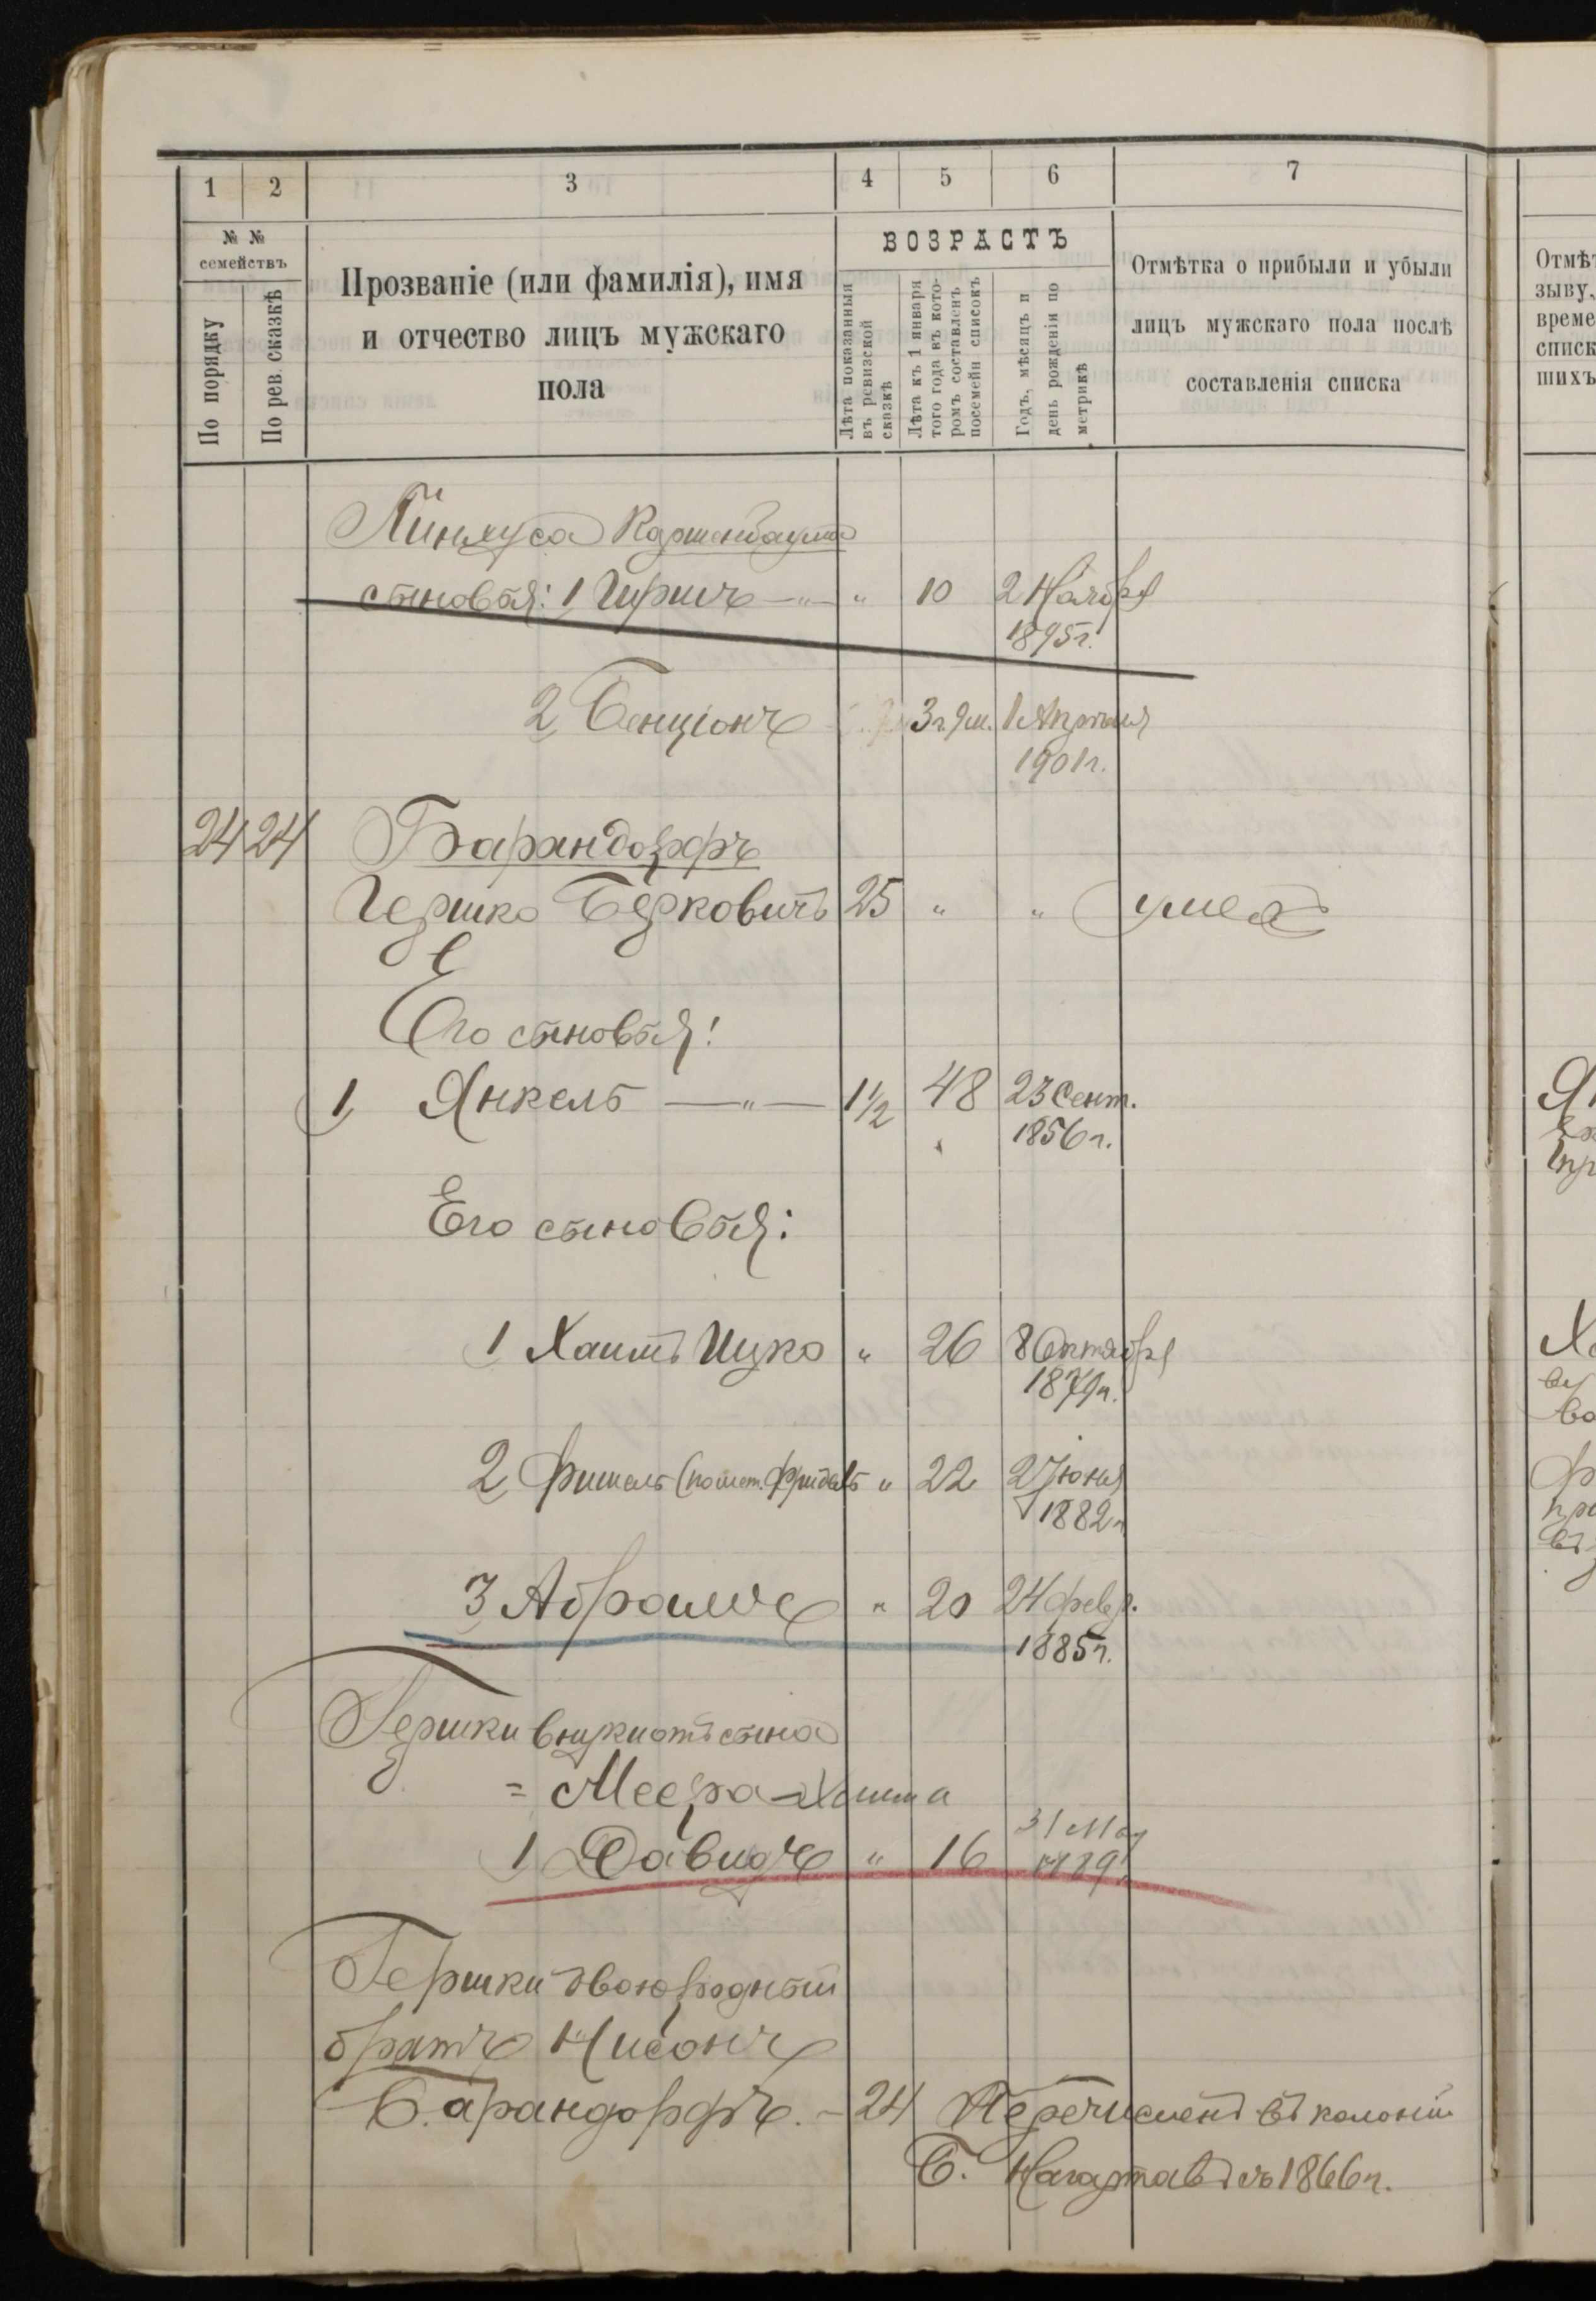 1 2 3 4 5 6 7
№ №
семействъ
По порядку
По рев. сказкѣ
Прозваніе (или фамилія), имя
и отчество лицъ мужскаго
пола
ВОЗРАСТЪ
Лѣта показанныя
въ ревизской
сказкѣ
Лѣта къ 1 января
того года въ кото-
ромъ составленъ
посемейн списокъ
Годъ, мѣсяцъ и
день рожденія по
метрикѣ
Отмѣтка о прибыли и убыли
лицъ мужскаго пола послѣ
составленія списка
Пинхуса
сыновья: 1 Гиршъ — " — " 10 2 Ноября
1895 г.
2 Бенціонъ 3 г. 9 м. 1 Апрѣля
1901 г.
24 24 Барандорфъ
Гершко Берковичъ 25 " " умеръ
Его сыновья:
1, Янкель — " — 1½ 48 23 Сент.
1856 г.
Его сыновья:
1 Хаимъ Ицко " 26 8 Октября
1879 г.
2 Фишель (по мет. Фридель " 22 27 Юня
1882 г
3 Абрамъ " 20 24 февр.
1885 г.
Гершки внуки отъ сына
= Меера-Хаима
1 Давидъ " 16 31 Мая
Гершки двоюродный
братъ Нисонъ
Барандорфъ. — 24 Перечисленъ въ колонію
Б. Нагартавъ съ 1866 г.